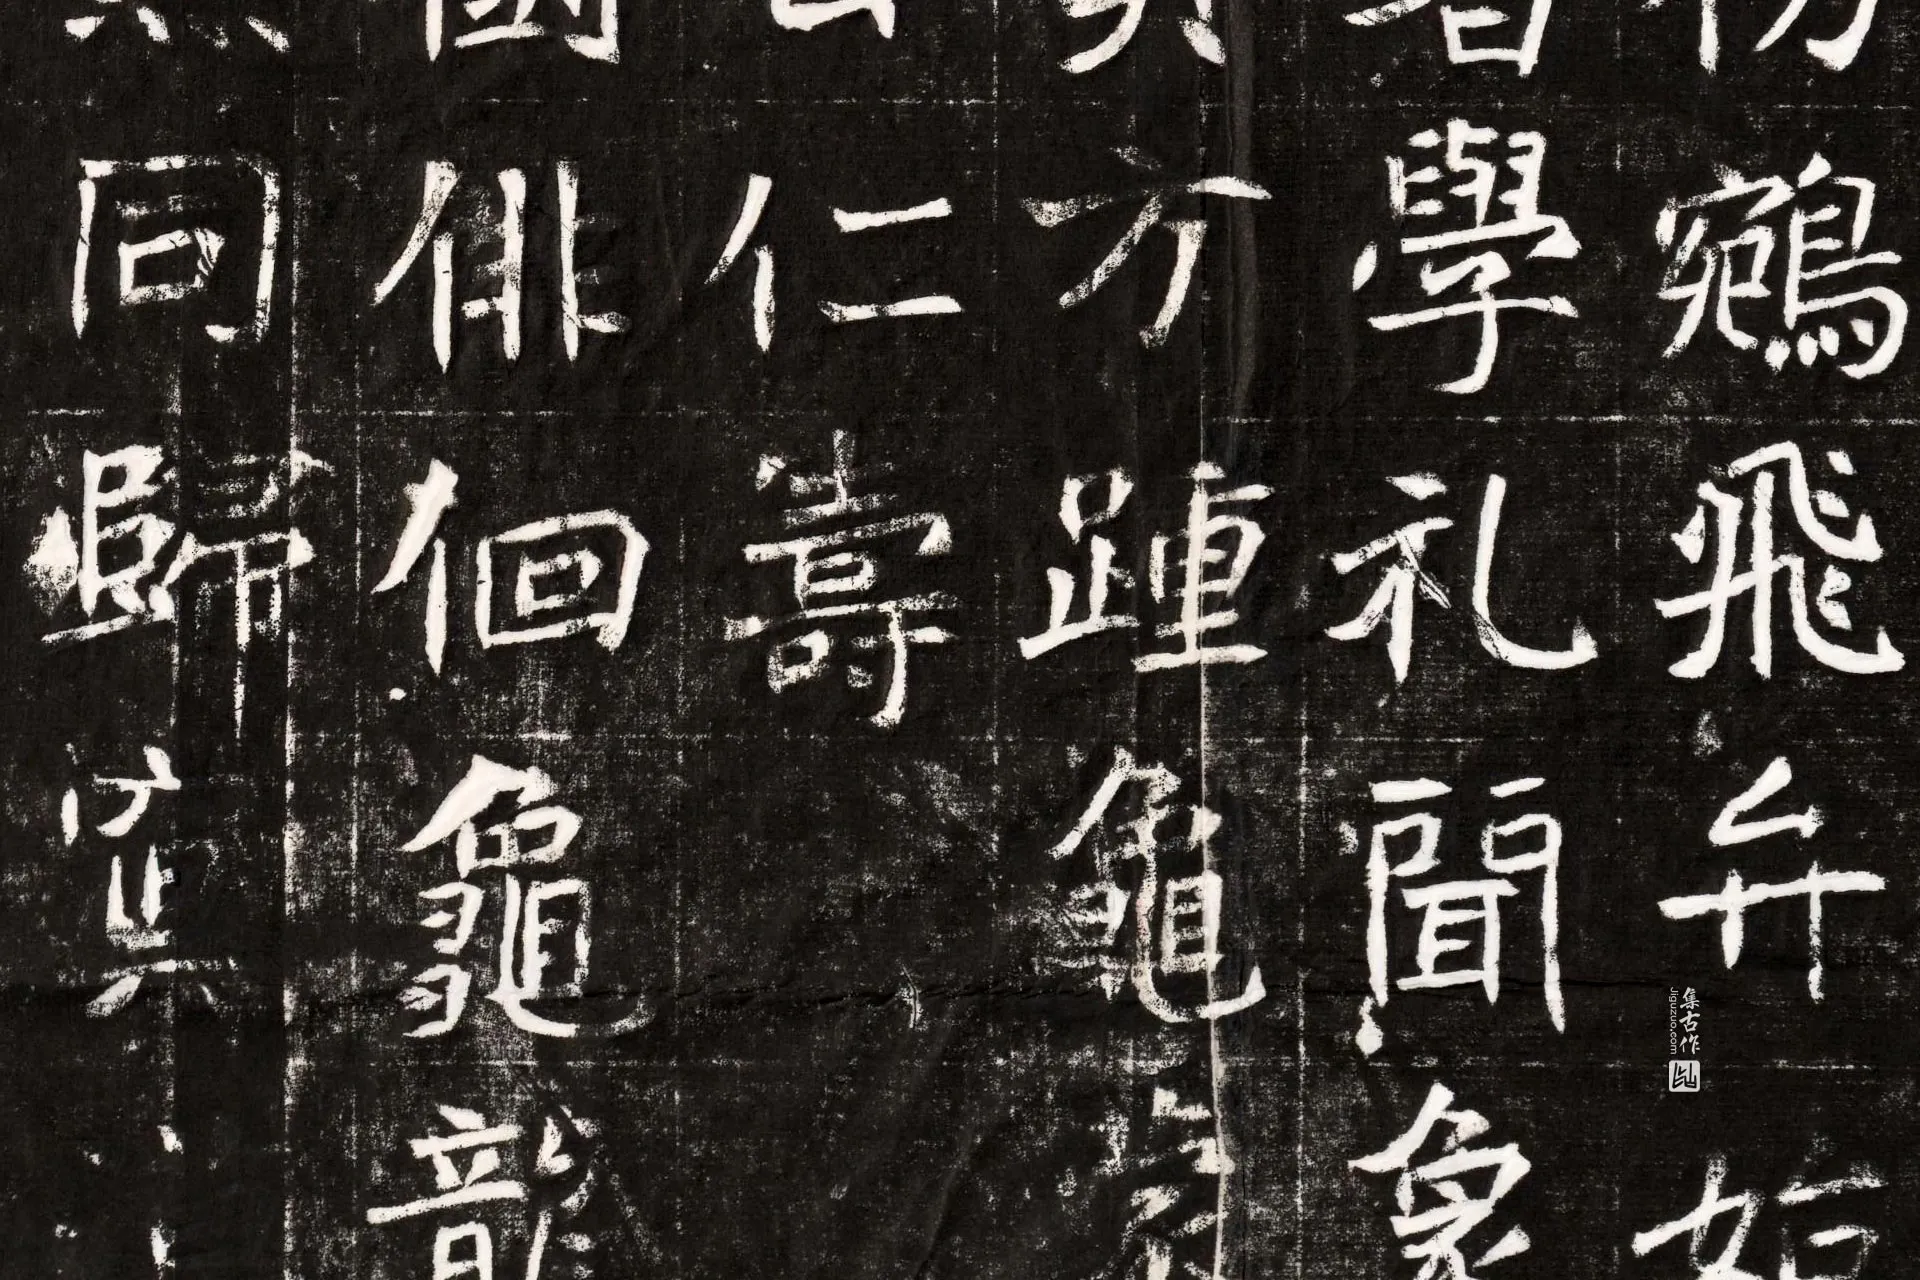 鵷飛弁始
學礼聞象
方踵龜
仁壽
俳佪龜龍
同歸於
集古作
Jiguzuo.com